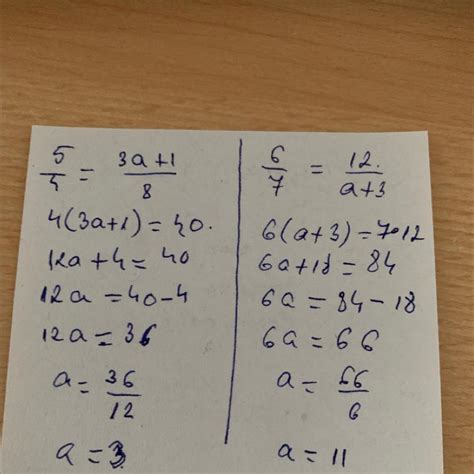 5/4 = 3a+1/8
4(3a+1)=40.
12a+4=40
12a=40-4
12a=36
a=36/12
a=3
6/7 = 12./a+3
6(a+3)=7•12
6a+18=84
6a=84-18
6a=66
a=66/6
a=11